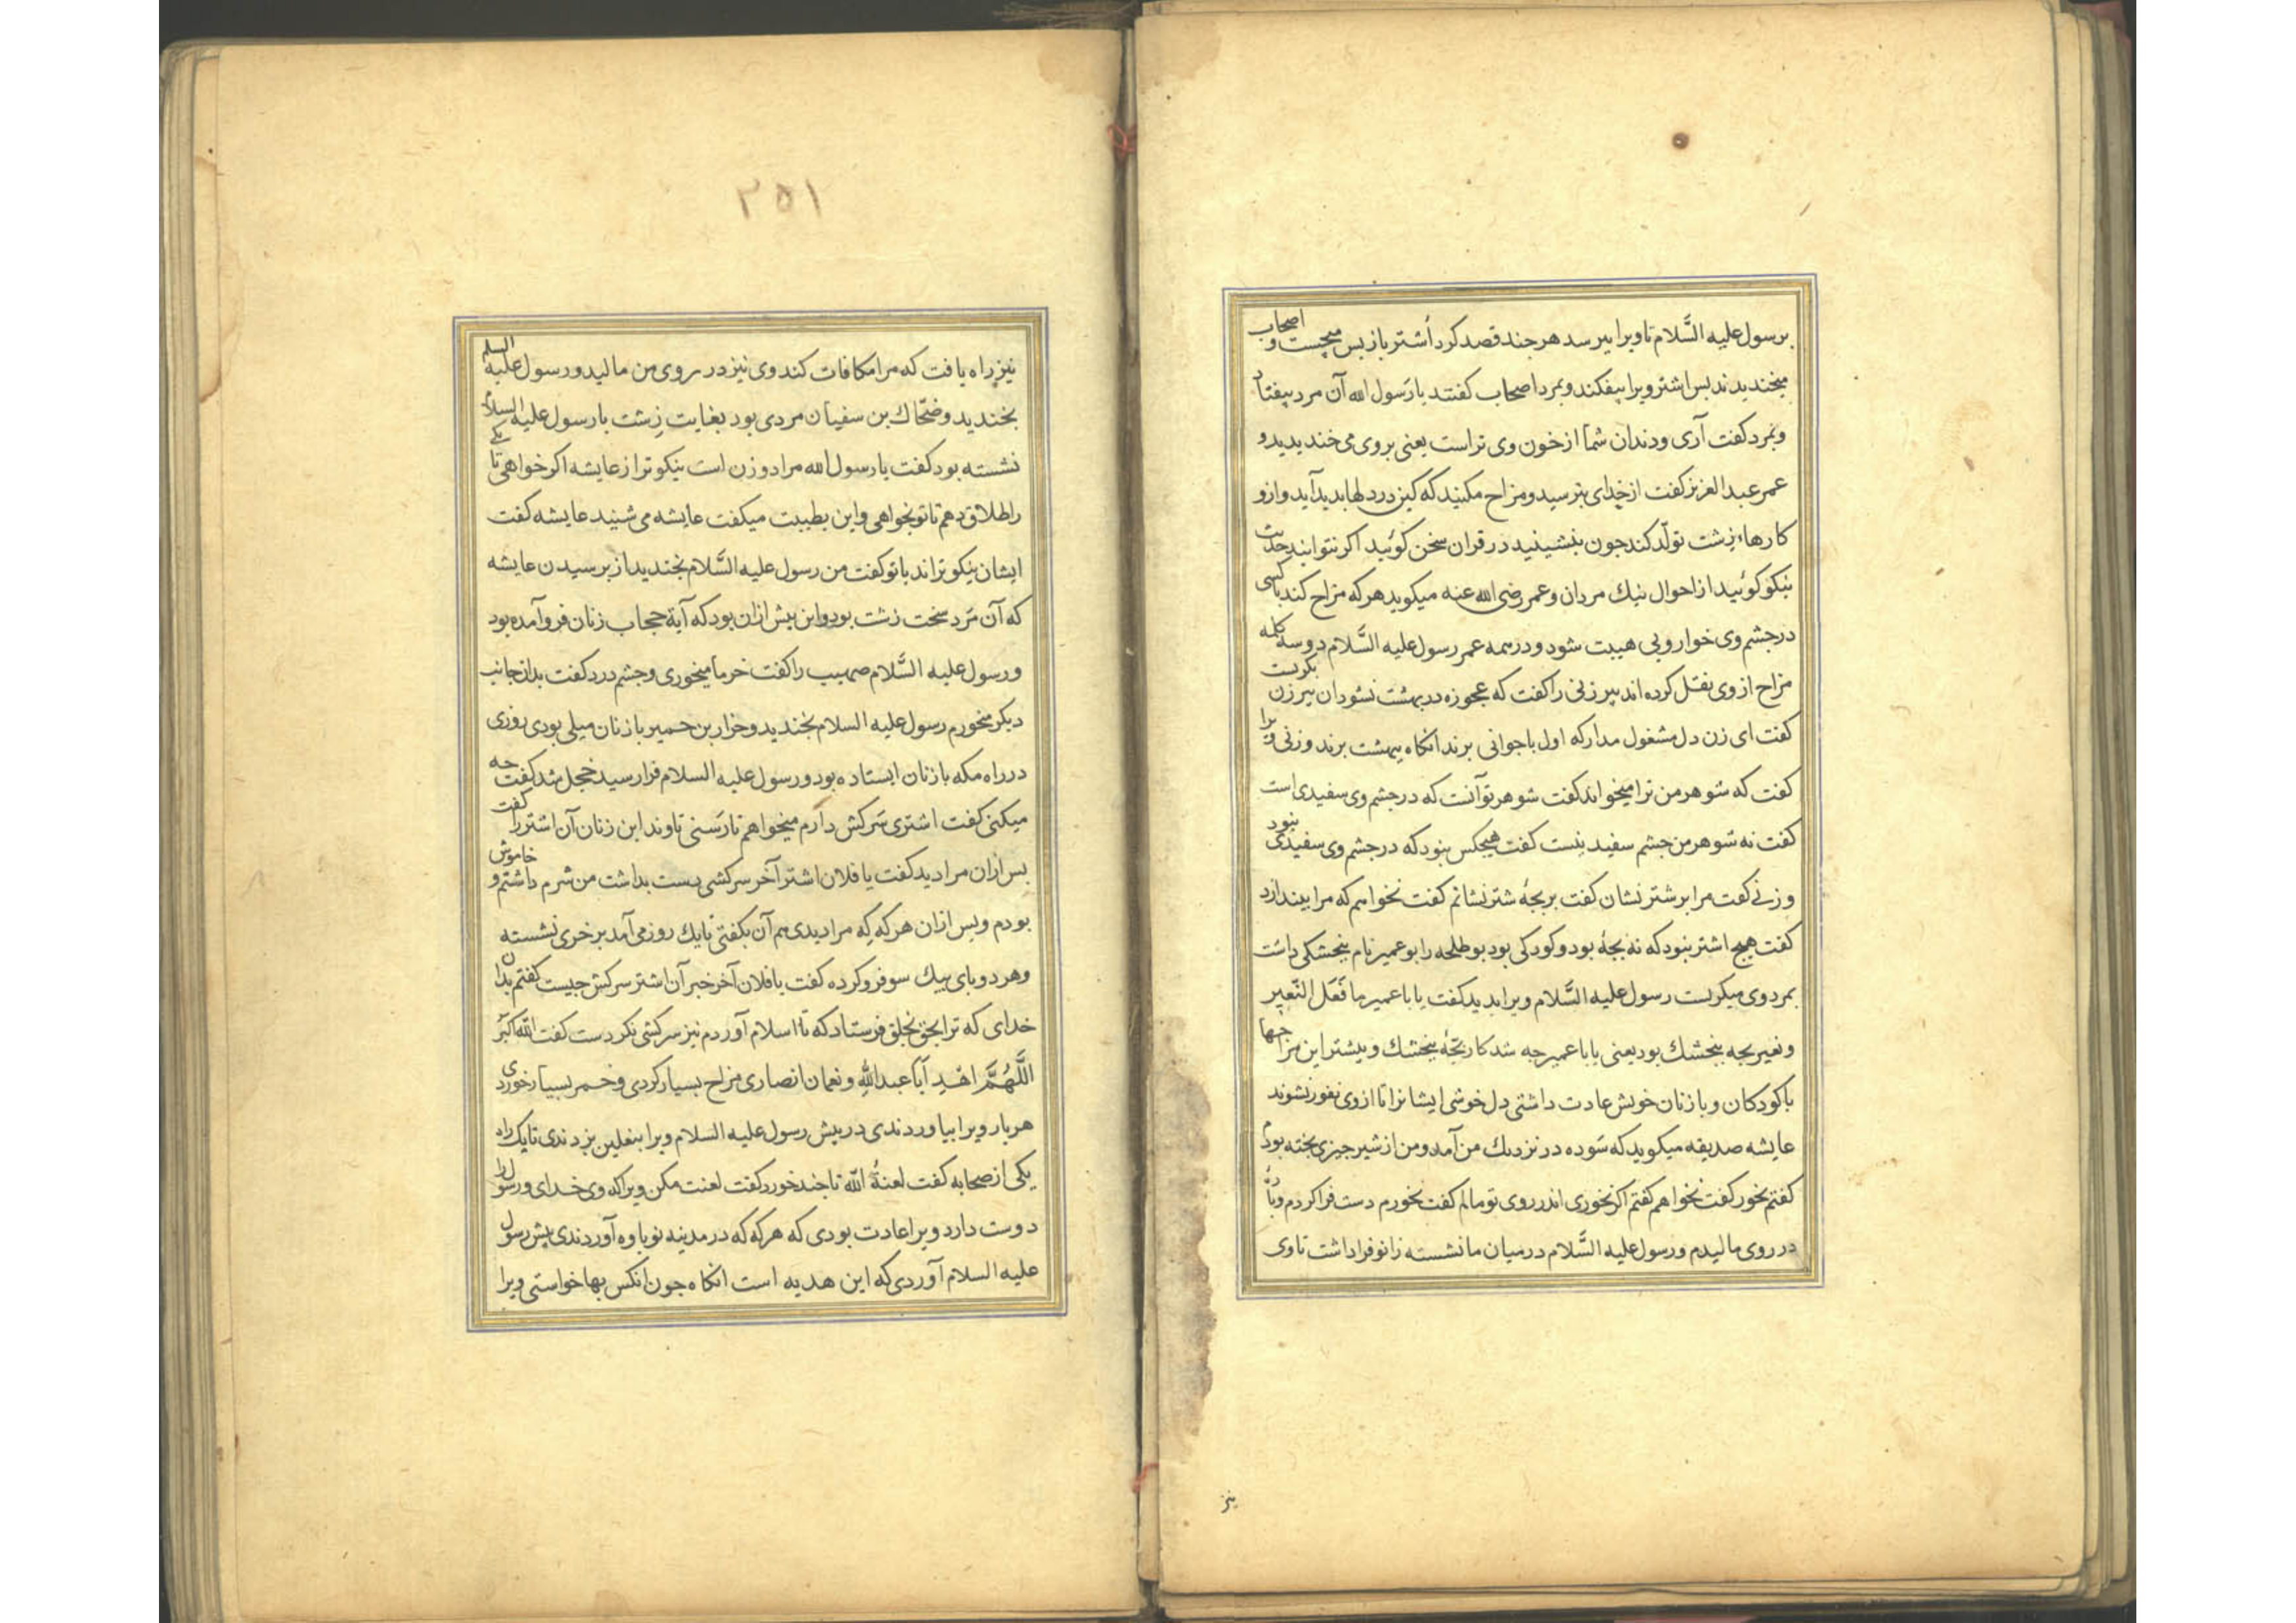 برسول علیه السَّلام تا ویرا بپرسد هر جند قصد کرد اُشتر باز بس میجست و اصحاب
میخندیدند بس اشتر ویرا بیفکند و بمرد اصحاب کفتند یا رَسول الله آن مرد بیفتاد
و بمرد کفت آری و دندان شما از خون وی تر است یعنی بر وی می خندیدید و
عمر عبد العزیز کفت از خدای بترسید و مزاح مکنید که کین در دلها بدید آید و ازو
کارهاء زِشت تولّد کند جون بنشینید در قران سخن کوئید اکر نتوانید حدیث
نیکو کوئید از احوال نیك مردان و عمر رضی الله عنه میکوید هر که مزاح کند با کسی
در جشم وی خوار و بی هیبت شود و در همه عمر رسول علیه السَّلام دو سه کلمه
مزاح از وی نقل کرده اند پیر زنی را کفت که عجوزه در بهشت نشود ان پیر زن بکریست
کفت ای زن دل مشغول مدار که اول با جوانی برند انکاه ببهشت برند و زنی ویرا
کفت که شوهر من ترا میخواند کفت شوهر تو آنست که در جشم وی سفیدی است
کفت نه شوهر من جشم سفید نیست کفت هیجکس نبود که در جشم وی سفیدی نبود
و زنی کفت مرا بر شتر نشان کفت بر بجۀ شتر نشانم کفت نخواهم که مرا بیندازد
کفت هیج اشتر نبود که نه بجۀ بود و کودکی بود بو طلحه را بو عمیر نام بنجشکی داشت
بمرد وی میکریست رسول علیه السَّلام ویرا بدید کفت یا با عمیر ما فَعَل النّغیر
و نغیر بجه بنجشك بود یعنی یا با عمیر جه شد کار بجۀ بنجشك و بیشتر این مزاحها
با کودکان و با زنان خویش عادت داشتی دل خوشی ایشانرا تا از وی نفور نشوند
عایشه صدیقه میکوید که سَوده در نزدیك من آمد و من از شیر جیزی پخته بودم
کفتم بخور کفت نخواهم کفتم اکر نخوری اندر روی تو مالم کفت نخورم دست فرا کردم و بارۀ
در روی مالیدم و رسول علیه السَّلام در میان ما نشسته زانو فرا داشت تا وی
نیز
۲۵۱
نیز راه یافت که مرا مکافات کند وی نیز در روی من مالید و رسول علیه السلم
بخندید و ضحّاك بن سفیان مردی بود بغایت زِشت با رسول علیه السلام
نشسته بود کفت یا رسول الله مرا دو زن است نیکوتر از عایشه اکر خواهی تا یکی
را طلاق دهم تا تو بخواهی و این بطیبت میکفت عایشه می شنید عایشه کفت
ایشان نیکوتراند یا تو کفت من رسول علیه السَّلام بخندید از برسیدن عایشه
که آن مَرد سخت زشت بود و این بیش از ان بود که آیة حجاب زنان فرو آمده بود
و رسول علیه السَّلام صهیب را کفت خرما میخوری و جشم درد کفت بدان جانب
دیکر میخورم رسول علیه السلام بخندید و خوار بن حمیر با زنان میلی بودی روزی
در راه مکه با زنان ایستاده بود و رسول علیه السلام فرا رسید خجل شد کفت جه
میکنی کفت اشتری سَرکش دارم میخواهم تا رَسنی تاوند این زنان آن اشتر را کفت
بس ازان مرا دید کفت یا فلان اشتر آخر سرکشی بدست بداشت من شرم داشتم و خاموش
بودم و بس ازان هر که که مرا دیدی هم آن بکفتی تا یك روز می آمد بر خری نشسته
و هر دو بای بیك سو فرو کرده کفت یا فلان آخر خبر آن اشتر سرکش جیست کفتم بدان
خدای که ترا بحق بخلق فرستاد که تا اسلام آوردم نیز سرکشی نکردست کفت الله اکبر
اللَّهُمَّ اهْدِ اَبا عبداللهِ و نعمان انصاری مزاح بسیار کردی و خمر بسیار خوردی
هر بار ویرا بیاوردندی در بیش رسول علیه السلام ویرا بنعلین بزدندی تا یك راه
یکی از صحابه کفت لعنةُ اللّه تا جند خورد کفت لعنت مکن ویرا که وی خدای و رسول را
دوست دارد ویرا عادت بودی که هر که که در مدینه نوباوه آوردندی بیش رسول
علیه السلام آوردی که این هدیه است انکاه جون انکس بها خواستی ویرا